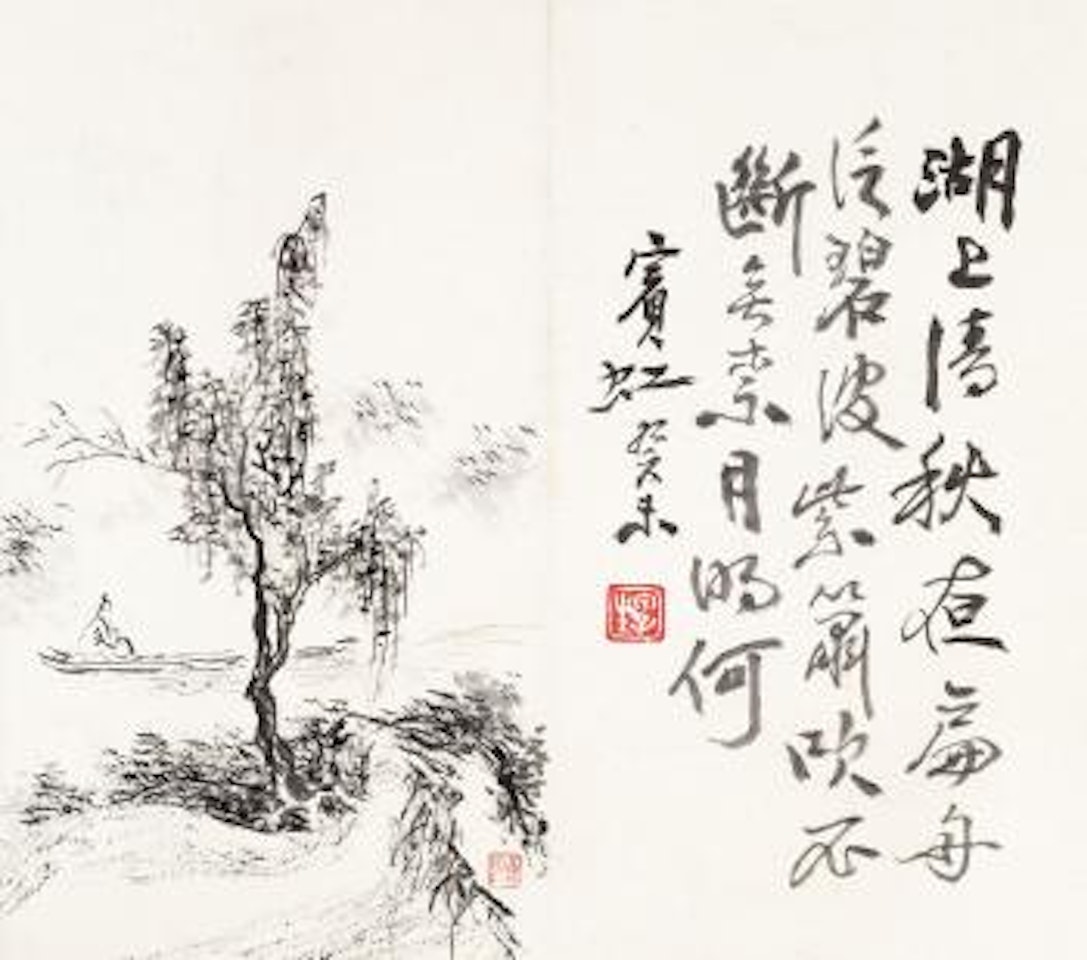 湖上清秋夜扁舟
泛碧波紫簫吹不
斷無柰月明何
賓虹癸未